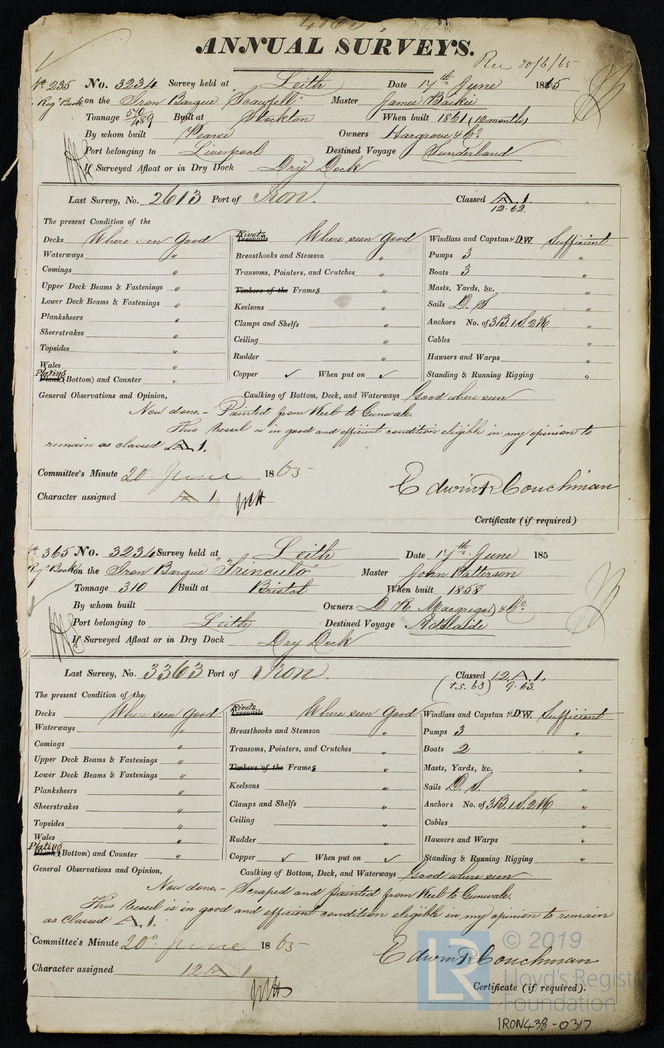 ANNUAL SURVEYS.
Rec 20/6/65
No 235 No. 3234 Survey held at Leith Date 17th June 1865
Reg Book on the Iron Barque Scawfell Master James Backie
Tonnage 540 489 Built at Stockton When built 1861 (12 months)
By whom built Pearse Owners Hargrove & Co
Port belonging to Liverpool Destined Voyage Sunderland
If Surveyed Afloat or in Dry Dock Dry Dock
Last Survey, No. 2613 Port of Iron. Classed A 1.
12.62.
The present Condition of the
Decks Where seen Good Rivets Treenails Where seen Good Windlass and Capstan & D.W. Sufficient
Waterways " Breasthooks and Stemson " Pumps 3 "
Comings " Transoms, Pointers, and Crutches " Boats 3 "
Upper Deck Beams & Fastenings " Timbers of the Frames " Masts, Yards, &c. "
Lower Deck Beams & Fastenings " Keelsons " Sails D. S "
Planksheers " Clamps and Shelfs " Anchors No. of 3B. 1S. 2K "
Sheerstrakes " Ceiling " Cables "
Topsides " Rudder " Hawsers and Warps "
Wales " Copper ✓ When put on ✓ Standing & Running Rigging "
Plating Plank (Bottom) and Counter "
General Observations and Opinion, Caulking of Bottom, Deck, and Waterways Good where seen
Now done, - Painted from Keel to Gunwale.
This Vessel is in good and efficient condition eligible in my opinion to
remain as classed A 1.
Committee's Minute 20 June 1865
Edwin R Couchman
Character assigned A 1
Certificate (if required)
No 365 No. 3234 Survey held at Leith Date 17th June 185
Reg Book on the Iron Barque "Trinculo" Master John Patterson
Tonnage 310 Built at Bristol When built 1858
By whom built Owners D. R. Macgregor & Co
Port belonging to Leith Destined Voyage Adelaide
If Surveyed Afloat or in Dry Dock Dry Dock
Last Survey, No. 3363 Port of Iron. Classed 12 A 1.
(t.s. 63) 9.63.
The present Condition of the
Decks Where seen Good Rivets Treenails Where seen Good Windlass and Capstan & D.W. Sufficient
Waterways " Breasthooks and Stemson " Pumps 3 "
Comings " Transoms, Pointers, and Crutches " Boats 2 "
Upper Deck Beams & Fastenings " Timbers of the Frames " Masts, Yards, &c. "
Lower Deck Beams & Fastenings " Keelsons " Sails D. S. "
Planksheers " Clamps and Shelfs " Anchors No. of 3B. 1S. 2K "
Sheerstrakes " Ceiling " Cables "
Topsides " Rudder " Hawsers and Warps "
Wales " Copper ✓ When put on ✓ Standing & Running Rigging "
Plating Plank (Bottom) and Counter "
General Observations and Opinion, Caulking of Bottom, Deck, and Waterways Good where seen
Now done, - Scraped and painted from Keel to Gunwale.
This Vessel is in good and efficient condition eligible in my opinion to remain
as classed A. 1.
Committee's Minute 20 June 1865
Edwin R Couchman
Character assigned 12 A 1
Certificate (if required).
LR © 2019
Lloyd's Register
Foundation
IRON438-0317